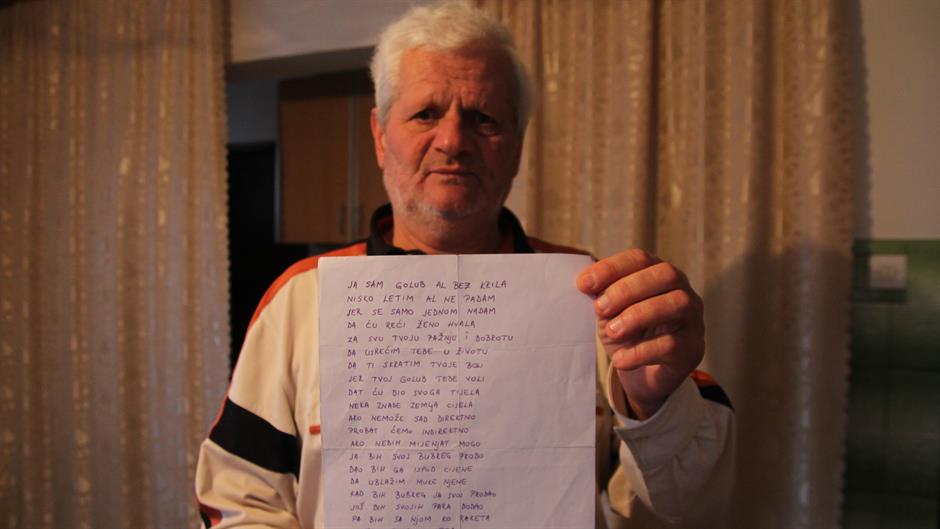 JA SAM GOLUB AL BEZ KRILA
NISKO LETIM AL NE PADAM
JER SE SAMO JEDNOM NADAM
DA ĆU REĆI ŽENO HVALA
ZA SVU TVOJU PAŽNJU I DOBROTU
DA USREĆIM TEBE U ŽIVOTU
DA TI SKRATIM TVOJE BOLI
JER TVOJ GOLUB TEBE VOLI
DAT ĆU DIO SVOGA TIJELA
NEKA ZNADE ZEMLJA CIJELA
AKO NEMOŽE SAD DIREKTNO
PROBAT ĆEMO INDIREKTNO
AKO NEBIH MIJENJAT MOGO
JA BIH SVOJ BUBREG PRODO
DAO BIH GA ISPOD CIJENE
DA UBLAŽIM MUKE NJENE
KAD BIH BUBREG JA SVOJ PRODAO
JOŠ BIH SVOJIH PARA DODAO
PA BIH SA NJOM KO RAKETA